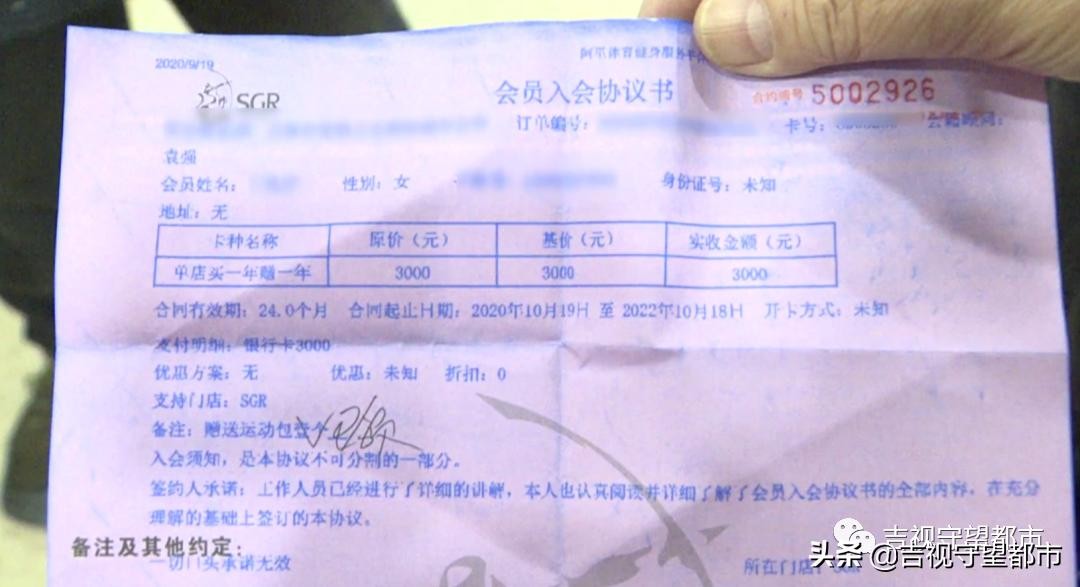 2020/9/19 阿里体育健身服务平
SGR 会员入会协议书 合约编号 5002926
订单编号: 卡号: 会籍顾问:
袁强
会员姓名: 性别: 女 身份证号: 未知
地址: 无
卡种名称 原价（元） 基价（元） 实收金额（元）
单店买一年赠一年 3000 3000 3000
合同有效期: 24.0个月 合同起止日期: 2020年10月19日 至 2022年10月18日 开卡方式: 未知
支付明细: 银行卡3000
优惠方案: 无 优惠: 未知 折扣: 0
支持门店: SGR
备注: 赠送运动包壹个
入会须知，是本协议不可分割的一部分。
签约人承诺: 工作人员已经进行了详细的讲解，本人也认真阅读并详细了解了会员入会协议书的全部内容，在充分
理解的基础上签订的本协议。
备注及其他约定:
一切口头承诺无效 所在门店:
吉视守望都市
头条 @吉视守望都市